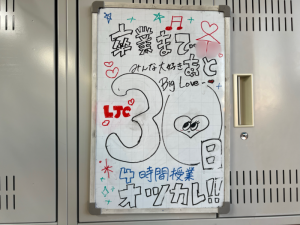 卒業まで
あと
みんな大好き
Big Love
30日
LJC
4時間授業
オツカレ!!